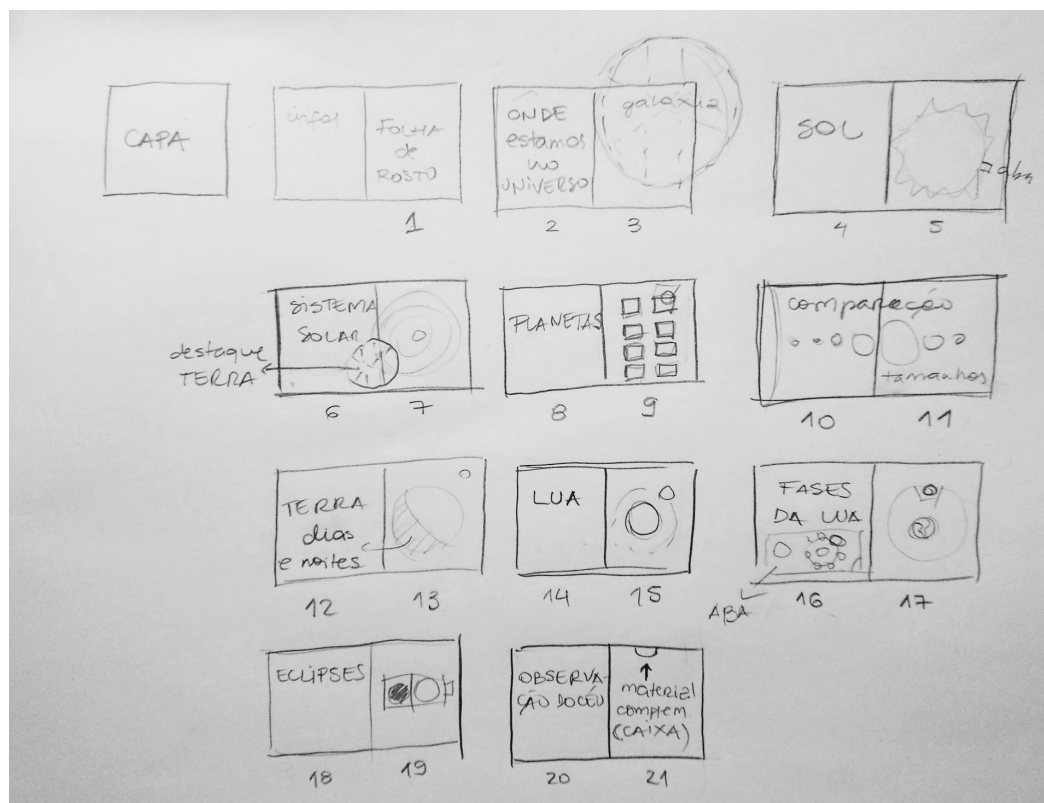 CAPA
infos
FOLHA
de
ROSTO
1
ONDE
estamos
no
UNIVERSO
galáxia
2
3
SOL
aba
4
5
SISTEMA
SOLAR
destaque
TERRA
6
7
PLANETAS
8
9
comparação
tamanhos
10
11
TERRA
dias
e noites
12
13
LUA
14
15
FASES
DA LUA
ABA
16
17
ECLIPSES
18
19
OBSERVA-
ÇÃO DO CÉU
material
complem
(CAIXA)
20
21